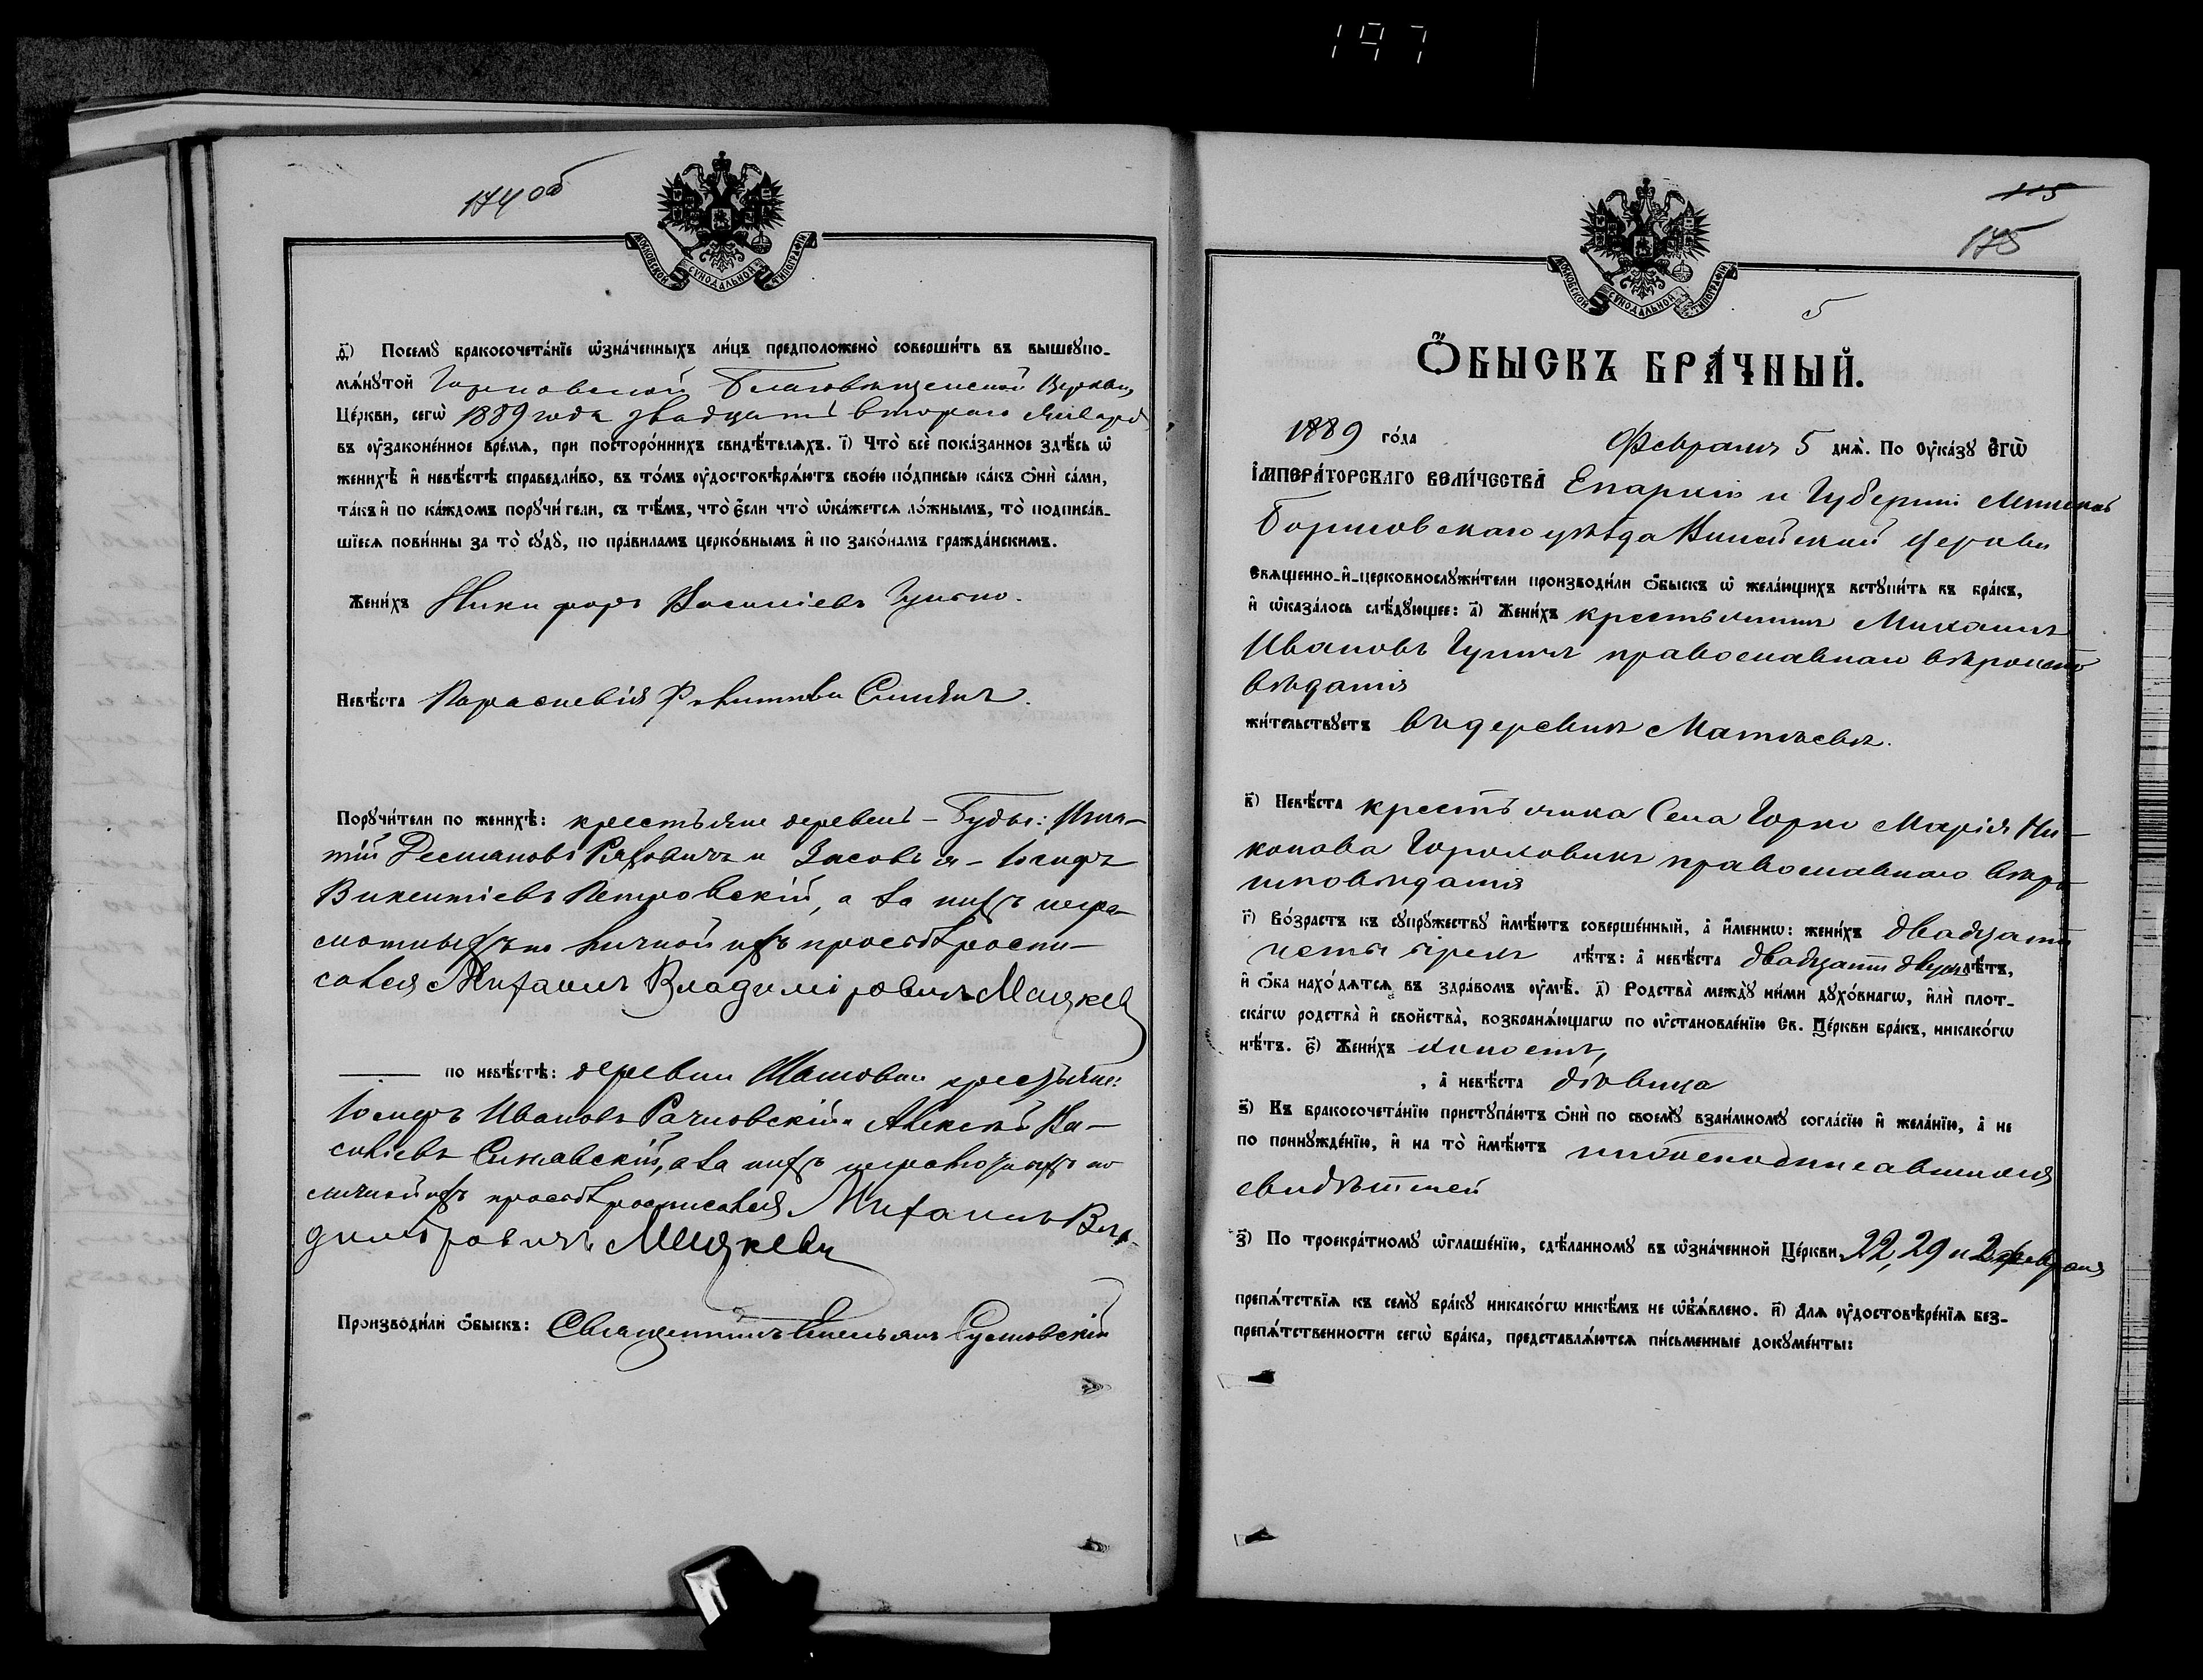 197
174 об
МОСКОВСКОЙ СѴНОДАЛЬНОЙ ТИПОГРАФІИ
д҃) Посемꙋ бракосочета́нїе ѡ҆зна́ченныхъ ли́цъ предположено̀ соверши́ть въ вышеꙋпо-
мѧ́нꙋтой Благовѣщенской Церкви,
Це́ркви, сегѡ̀ 1889 года двадцать втораго Января
въ ᲂу҆зако́ненное вре́мѧ, при посторо́ннихъ свидѣ́телѧхъ. і҃) Что̀ всѐ пока́занное здѣ́сь ѡ҆
женихѣ̀ и҆ невѣ́стѣ справедли́во, въ то́мъ ᲂу҆достовѣрѧ́ютъ свое́ю по́дписью ка́къ ѻ҆нѝ са́ми,
та́къ и҆ по ка́ждомъ порꙋчи́тели, съ тѣ́мъ, что̀ є҆́сли что̀ ѡ҆ка́жетсѧ ло́жнымъ, то̀ подписа́в-
шїесѧ пови́нны за то̀ сꙋдꙋ̀, по пра́виламъ церко́внымъ и҆ по зако́намъ гражда́нскимъ.
Жени́хъ Никифоръ Василіевъ
Невѣ́ста Параскевія
Порꙋчи́тели по женихѣ̀: крестьяне деревень – Буды: Игна-
тій Рядовичъ и Засовья – Іосифъ
Викентіевъ Петровскій, а за нихъ негра-
мотныхъ по личной ихъ просьбѣ роспи-
сался Михаилъ Владиміровичъ
по невѣ́стѣ: деревни крестьяне:
Іосифъ Ивановъ и Алексѣй Ва-
силіевъ а за нихъ неграмотныхъ по
личной ихъ просьбѣ росписался Михаилъ Вла-
диміровичъ
Производи́ли ѻ҆́быскъ: Священникъ
115
175
МОСКОВСКОЙ СѴНОДАЛЬНОЙ ТИПОГРАФІИ
5
Ѻ҆́БЫСКЪ БРА́ЧНЫЙ.
1889 го́да Февраля 5 днѧ̀. По Оу҆ка́зꙋ Є҆гѡ̀
І҆МПЕРА́ТОРСКАГО ВЕЛИ́ЧЕСТВА Епархіи и Губерніи Минской
Борисовскаго уѣзда церкви
Свѧщенно-и҆-церковнослꙋжи́тели производи́ли ѻ҆́быскъ ѡ҆ жела́ющихъ встꙋпи́ть въ бра́къ,
и҆ ѡ҆каза́лось слѣ́дꙋющее: а҃) Жени́хъ крестьянинъ Михаилъ
Ивановъ православнаго вѣроиспо
вѣданія
жи́тельствꙋетъ въ деревнѣ Матвѣевѣ.
в҃) Невѣ́ста крестьянка Села Горко Марія Ни-
конова православнаго вѣро-
исповѣданія
г҃) Во́зрастъ къ сꙋпрꙋ́жествꙋ и҆мѣ́ютъ соверше́нный, а҆ и҆́менно: жени́хъ двадцати
четырехъ лѣ́тъ: а҆ невѣ́ста двадцати двухъ лѣ́тъ,
и҆ ѻ҆́ба нахо́дѧтсѧ въ здра́вомъ ᲂу҆мѣ̀. д҃) Родства̀ междꙋ̀ ни́ми дꙋхо́внагѡ, и҆лѝ плот-
ска́гѡ родства̀ и҆ сво́йства̀, возбранѧ́ющагѡ по ᲂу҆становле́нїю Св. Це́ркви бра́къ, никако́гѡ
нѣ́тъ. є҃) Жени́хъ холостъ,
, а҆ невѣ́ста дѣвица
ѕ҃) Къ бракосочета́нїю пристꙋпа́ютъ ѻ҆нѝ по своемꙋ̀ взаи́мномꙋ согла́сїю и҆ жела́нїю, а҆ не
по принꙋжде́нїю, и҆ на то̀ и҆мѣ́ютъ
свидѣтелей
з҃) По троекра́тномꙋ ѡ҆глаше́нїю, сдѣ́ланномꙋ въ ѡ҆зна́ченной Це́ркви 22, 29 и 2 февраля
препѧ́тствїѧ къ семꙋ̀ бра́кꙋ никако́гѡ никѣ́мъ не ѡ҆бъѧ́влено. и҃) Длѧ ᲂу҆достовѣре́нїѧ без-
препѧ́тственности сегѡ̀ бра́ка, представлѧ́ютсѧ пи́сьменные докꙋме́нты: